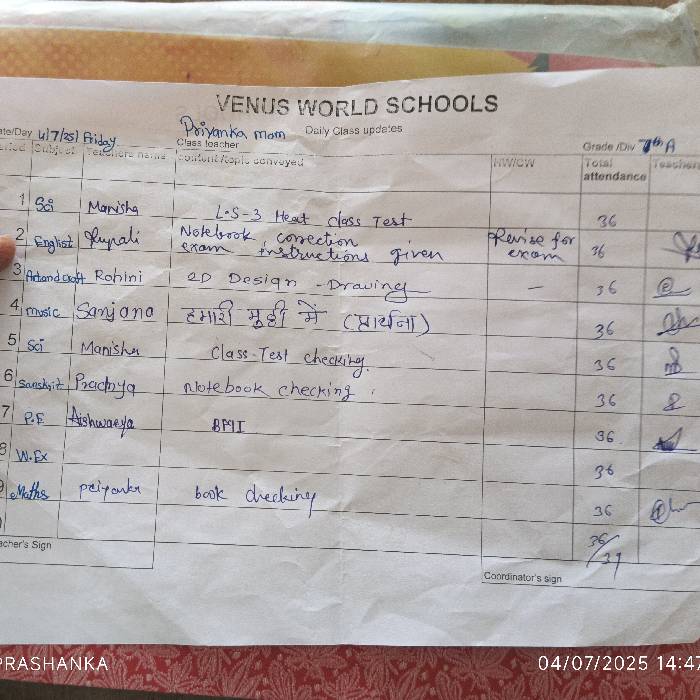 VENUS WORLD SCHOOLS
ate/Day 4/7/25/ Friday Priyanka mam Daily Class updates
Class teacher Grade /Div 7th A
eriod Subject Teachers name content /topic conveyed HW/CW Total attendance Teachers
1 Sci Manisha L.S-3 Heat class Test 36
2 English Rupali Notebook correction exam instructions given Revise for exam 36
3 Art and craft Rohini 2D Design - Drawing - 36
4 music Sanjana हमारी मुठ्ठी में (प्रार्थना) 36
5 Sci Manisha Class-Test checking. 36
6 Sanskrit Pradnya Notebook checking. 36
7 P.E Aishwarya BMI 36
8 W.Ex 36
9 Maths priyanka book checking 36
36/37
acher's Sign
Coordinator's sign
PRASHANKA 04/07/2025 14:47